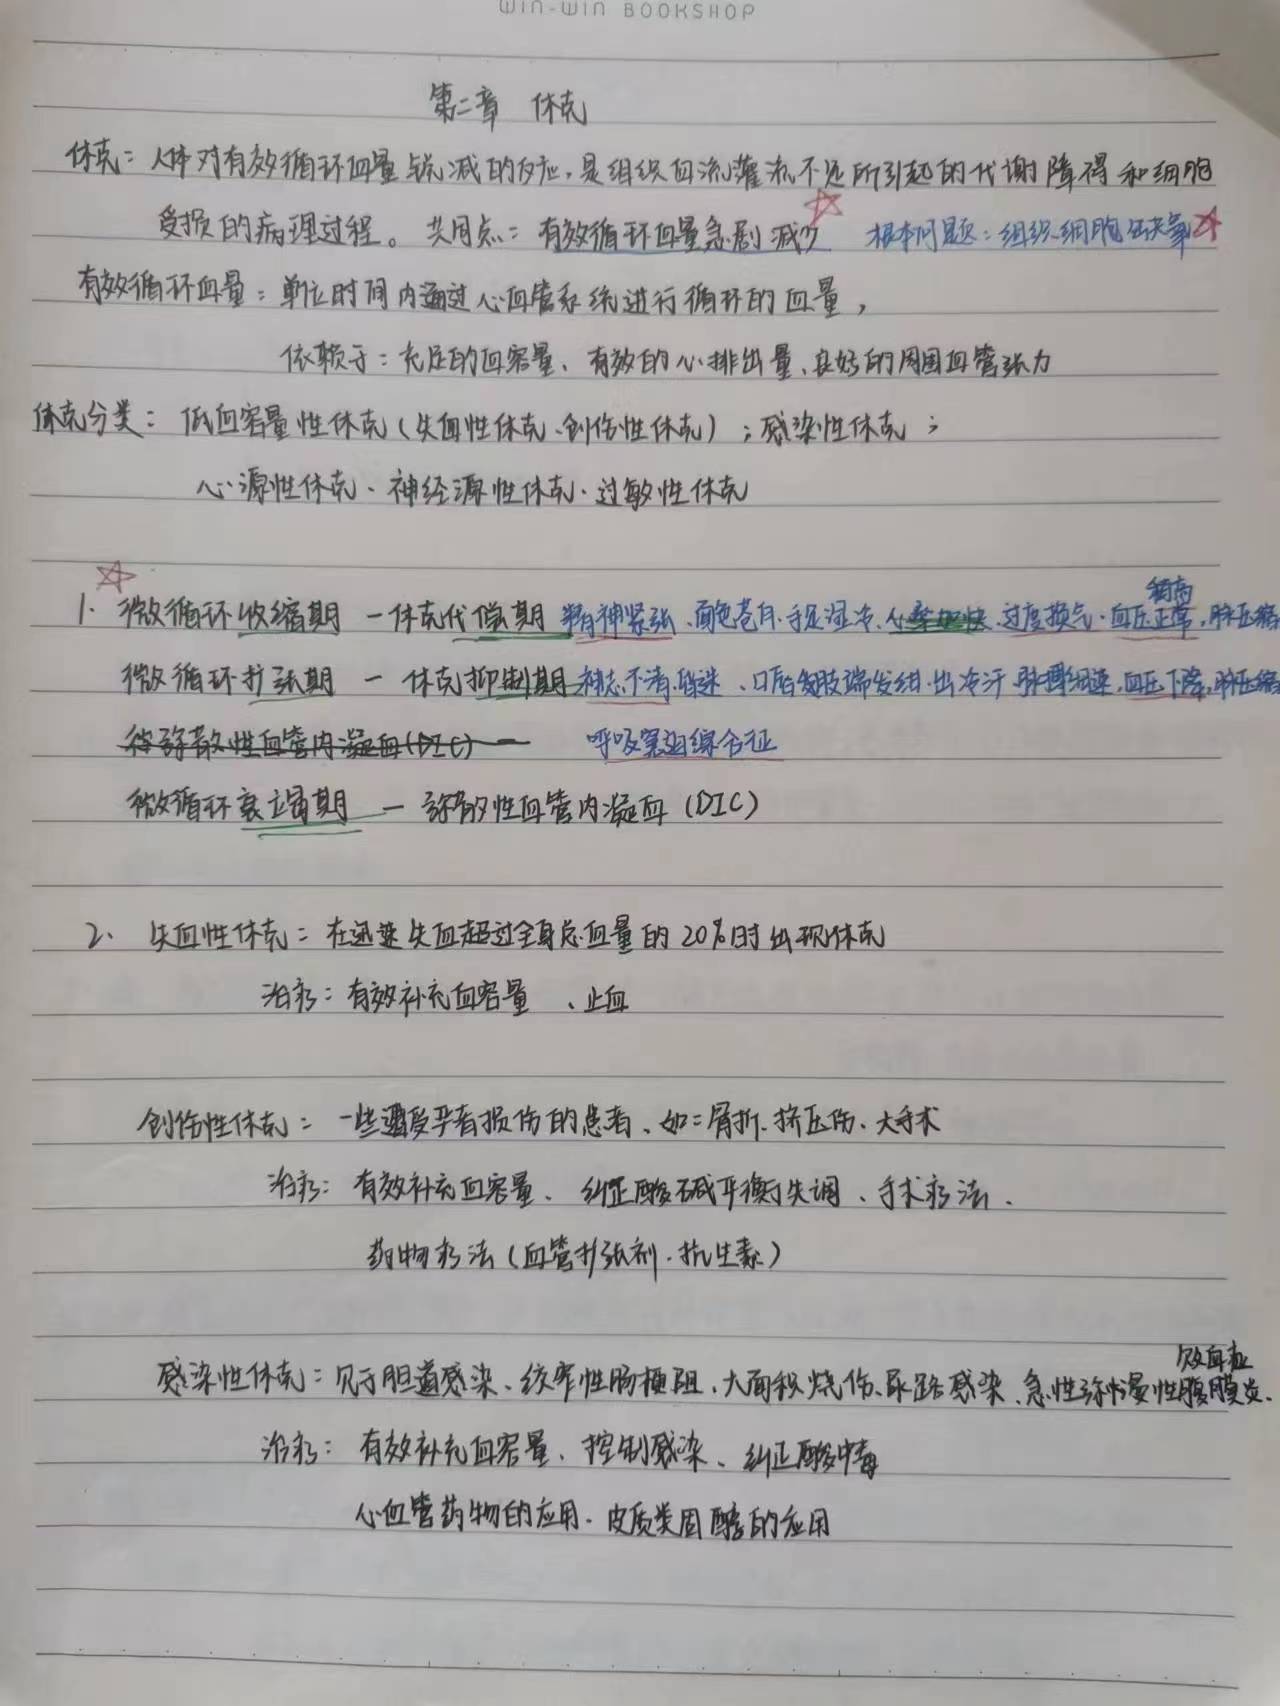 WIN-WIN BOOKSHOP
第二章 休克
休克：人体对有效循环血量锐减的反应，是组织血流灌流不足所引起的代谢障碍和细胞
受损的病理过程。共同点：有效循环血量急剧减少 根本问题：组织细胞缺氧
有效循环血量：单位时间内通过心血管系统进行循环的血量，
依赖于：充足的血容量、有效的心排出量、良好的周围血管张力
休克分类：低血容量性休克（失血性休克、创伤性休克）；感染性休克；
心源性休克、神经源性休克、过敏性休克
稍高
1. 微循环收缩期 — 休克代偿期 精神紧张、面色苍白、手足湿冷、心率加快、过度换气、血压正常，脉压缩
微循环扩张期 — 休克抑制期 神志不清、昏迷、口唇肢端发绀、出冷汗 脉搏细速，血压下降，脉压缩
弥散性血管内凝血（DIC）— 呼吸窘迫综合征
微循环衰竭期 — 弥散性血管内凝血（DIC）
2. 失血性休克：在迅速失血超过全身总血量的20%时出现休克
治疗：有效补充血容量 、止血
创伤性休克：一些遭受严重损伤的患者、如：骨折、挤压伤、大手术
治疗：有效补充血容量、纠正酸碱平衡失调、手术疗法、
药物疗法（血管扩张剂、抗生素）
败血症
感染性休克：见于胆道感染、绞窄性肠梗阻、大面积烧伤、尿路感染、急性弥漫性腹膜炎、
治疗：有效补充血容量、控制感染、纠正酸中毒
心血管药物的应用、皮质类固醇的应用